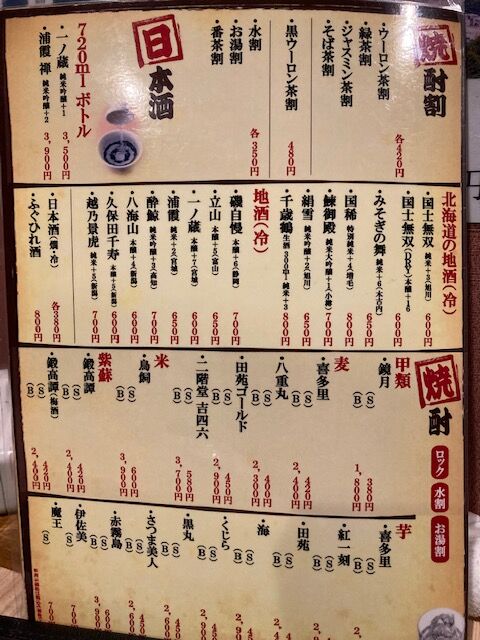 焼酎割
・ウーロン茶割
・緑茶割
・ジャスミン茶割
・そば茶割
各420円
・黒ウーロン茶割
480円
・水割
・お湯割
・番茶割
各350円
日本酒
720mlボトル
・一ノ蔵 純米吟醸+1
3,500円
・浦霞 禅 純米吟醸+2
3,900円
北海道の地酒(冷)
・国士無双 純米+3(旭川)
600円
・国士無双(DRY)本醸+16
600円
・みそぎの舞 純米+6(木古内)
650円
・国稀 特別純米+4(増毛)
800円
・鰊御殿 純米大吟醸+1(小樽)
700円
・絹雪 純米吟醸+2(旭川)
650円
・千歳鶴 生酒300ml 純米+3
800円
地酒(冷)
・磯自慢 本醸+6(静岡)
700円
・立山 本醸+5(富山)
650円
・一ノ蔵 本醸+7(宮城)
600円
・浦霞 純米+2(宮城)
650円
・酔鯨 純米吟醸+2(高知)
700円
・八海山 本醸+4(新潟)
600円
・久保田千寿 本醸+5(新潟)
600円
・越乃景虎 純米+3(新潟)
700円
・日本酒(燗・冷)
各380円
・ふぐひれ酒
800円
焼酎
ロック
水割
お湯割
甲類
・鏡月
(S) 380円
(B) 1,800円
麦
・喜多里
(S) 420円
(B) 2,400円
・八重丸
(S) 400円
(B) 2,300円
・田苑ゴールド
(S) 450円
(B) 2,900円
・二階堂 吉四六
(S) 580円
(B) 3,700円
米
・鳥飼
(S) 600円
(B) 3,900円
紫蘇
・鍛高譚
(S) 420円
(B) 2,400円
・鍛高譚(梅酒)
(S) 420円
(B) 2,400円
芋
・喜多里
(S)
(B)
・紅一刻
(S)
(B)
・田苑
(S)
(B)
・海
(S)
(B)
・くじら
(S)
(B)
・黒丸
(S)
(B)
・さつま美人
(S)
(B)
・赤霧島
(S)
(B)
・伊佐美
(S)
(B)
・魔王
(S)